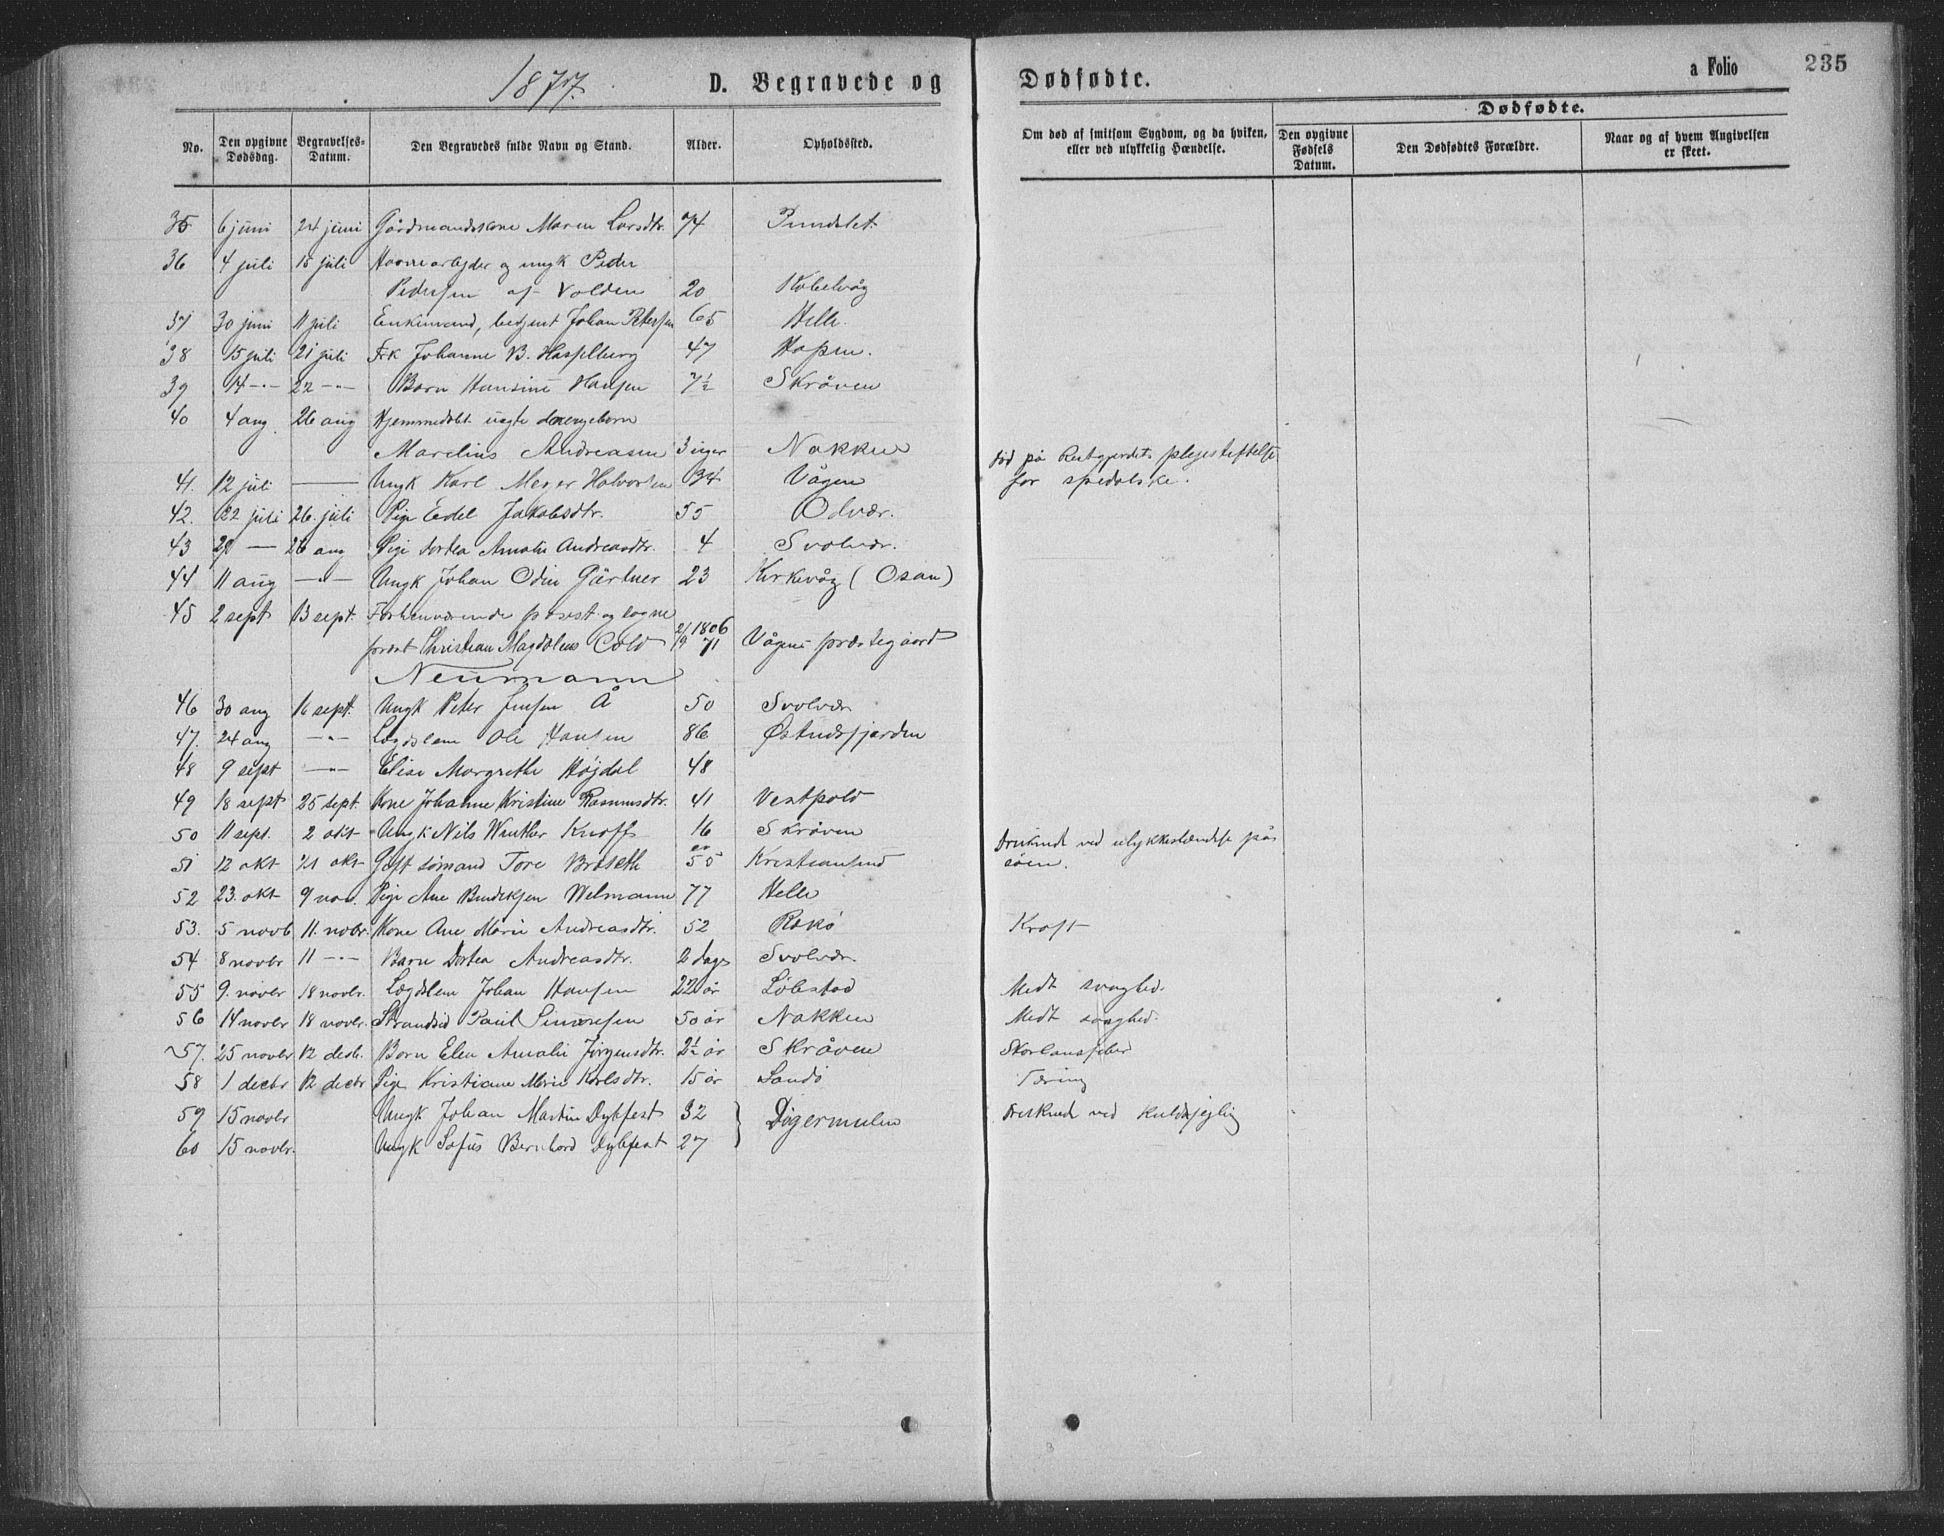 1877.
D. Begravede og Dødfødte.
a Folio 235
Dødfødte.
No. Den opgivne Dødsdag. Begravelses-Datum. Den Begravedes fulde Navn og Stand. Alder. Opholdssted. Om død af smitsom Sygdom, og da hviken, eller ved ulykkelig Hændelse. Den opgivne Fødsels Datum. Den Dødfødtes Forældre. Naar og af hvem Angivelsen er skeet.
35 6 juni 24 juni Gårdmandskone Maren Larsdtr. 74 Pundslet
36 4 juli 15 juli Havnearbejder og ungk Peder
Pedersen af Volden 20 Kabelvåg
37 30 juni 11 juli Enkemand, betjent Johan Petersen 65 Helle.
38 15 juli 21 juli Frk Johanne B. Hasselberg 47 Hopen.
39 14 -"- 22 -"- Barn Hansine Hansen 7½ Skråven
40 4 aug. 26 aug Hjemmedøbt uægte drengebarn
Marelius Andreasen 3 uger Nakken
41. 12 juli — Ungk Karl Meyer Halvorsen 34 Vågene død på Reitgjerdets plejestiftelse
for spedalske.
42. 22 juli 26. juli Pige Edel Jakobsdtr. 55 Odvær.
43 29 — 26 aug Pige Dortea Amalie Andreasdtr. 4 Svolvær.
44 11 aug -"- Ungk Johan Odin Gärtner 23 Kirkevåg (Osan)
45 2 sept 13 sept. Forhenværende provst og sogne
præst Christian Magdalus Cold 21/9 1806 71 Vågens præstegaard
Neumann
46 30 aug 16 sept. Ungk Peter Jensen Å 50 Svolvær
47. 24 aug -"- Lægdslem Ole Hansen 86 Østnesfjorden
48 9 sept -"- Elise Margrethe Højdal 48
49 18 sept 25 sept. Kone Johanne Kristine Rasmusdtr. 41 Vestpold
50 11 sept. 2 okt Ungk Nils Winther Knoff 16 Skråven Druknet ved ulykkeshændelse på
søen.
51 12 okt 21 okt Gift sømand Tore Bræseth ca 55 Kristiansund
52 23. okt 9 nov. Pige Ane Bendiksen Welmann 77 Helle
53. 5 novb 11. novbr. Kone Ane Marie Andreasdtr. 52 Risø Kræft
54 8 novbr 11 -"- Barn Dortea Andreasdtr. 2 dage Svolvær
55 9. novbr 18 novbr. Lægdslem Johan Hansen 22 år Løbstad Medf svaghed.
56 14 novbr 18 novbr. Strandsid Paul Simonsen 50 år Nakken Medf svaghed.
57. 25 novbr 12 decb. Barn Elen Amalie Jørgensdtr. 2½ år Skråven Skarlansfeber
58 1 decbr 12 decbr Pige Kristiane Marie Karlsdtr. 15 år Sandø Tæring
59 15 novbr Ungk Johan Martin Dybfest 32 Digermulen Druknet ved Kuldsejling
60 15 novbr. Ungk Sofus Bernhard Dybfest 27